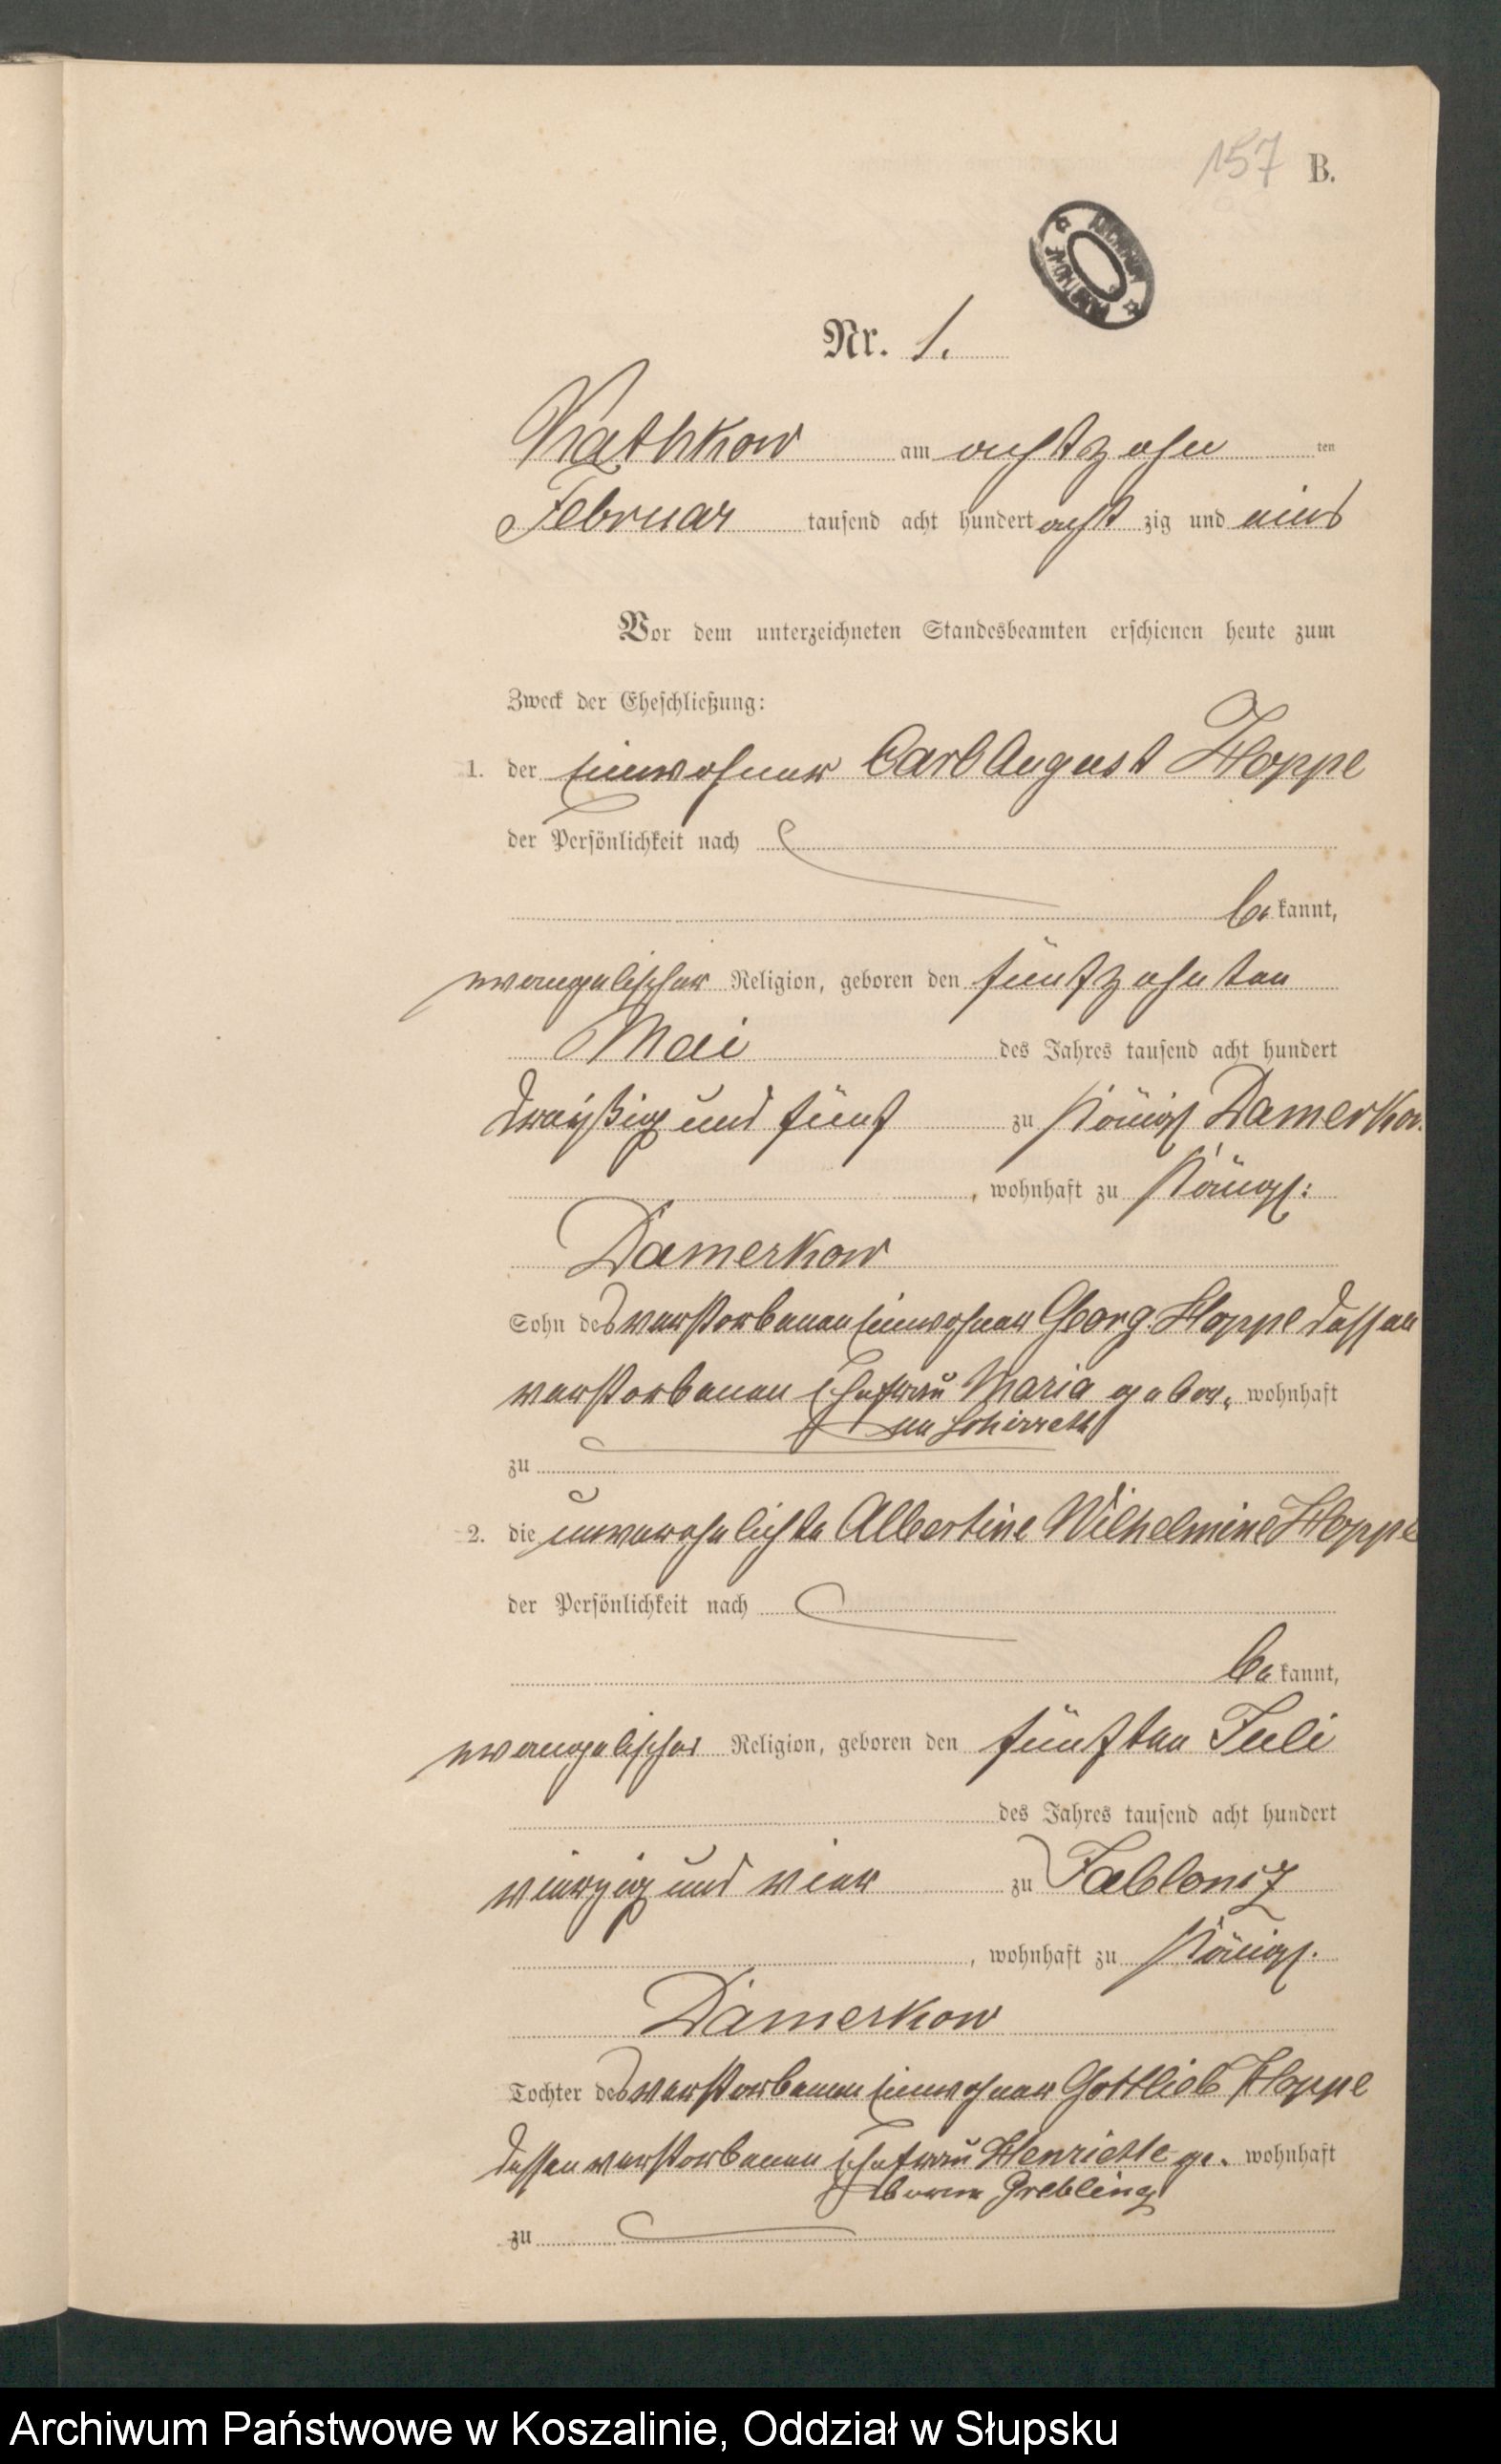 157 B.
Nr. 1.
Rathkow am achtzehn ten
Februar tausend acht hundert acht zig und eins
Vor dem unterzeichneten Standesbeamten erschienen heute zum
Zweck der Eheschließung:
1. der Einwohner Carl August Hoppe
der Persönlichkeit nach
be kannt,
evangelischer Religion, geboren den fünfzehnten
Mai des Jahres tausend acht hundert
dreißig und fünf zu Königl Damerkow
, wohnhaft zu Königl:
Damerkow
Sohn des verstorbenen Einwohner Georg Hoppe dessen
verstorbenen Ehefrau Maria gebor, wohnhaft
zu
2. die unverehelichte Albertine Wilhelmine Hoppe
der Persönlichkeit nach
be kannt,
evangelischer Religion, geboren den fünften Juli
des Jahres tausend acht hundert
vierzig und vier zu Jablonz
, wohnhaft zu Königl.
Damerkow
Tochter des verstorbenen Einwohner Gottlieb Hoppe
dessen verstorbenen Ehefrau Henriette ge- wohnhaft
borene Grebling
zu
Archiwum Państwowe w Koszalinie, Oddział w Słupsku